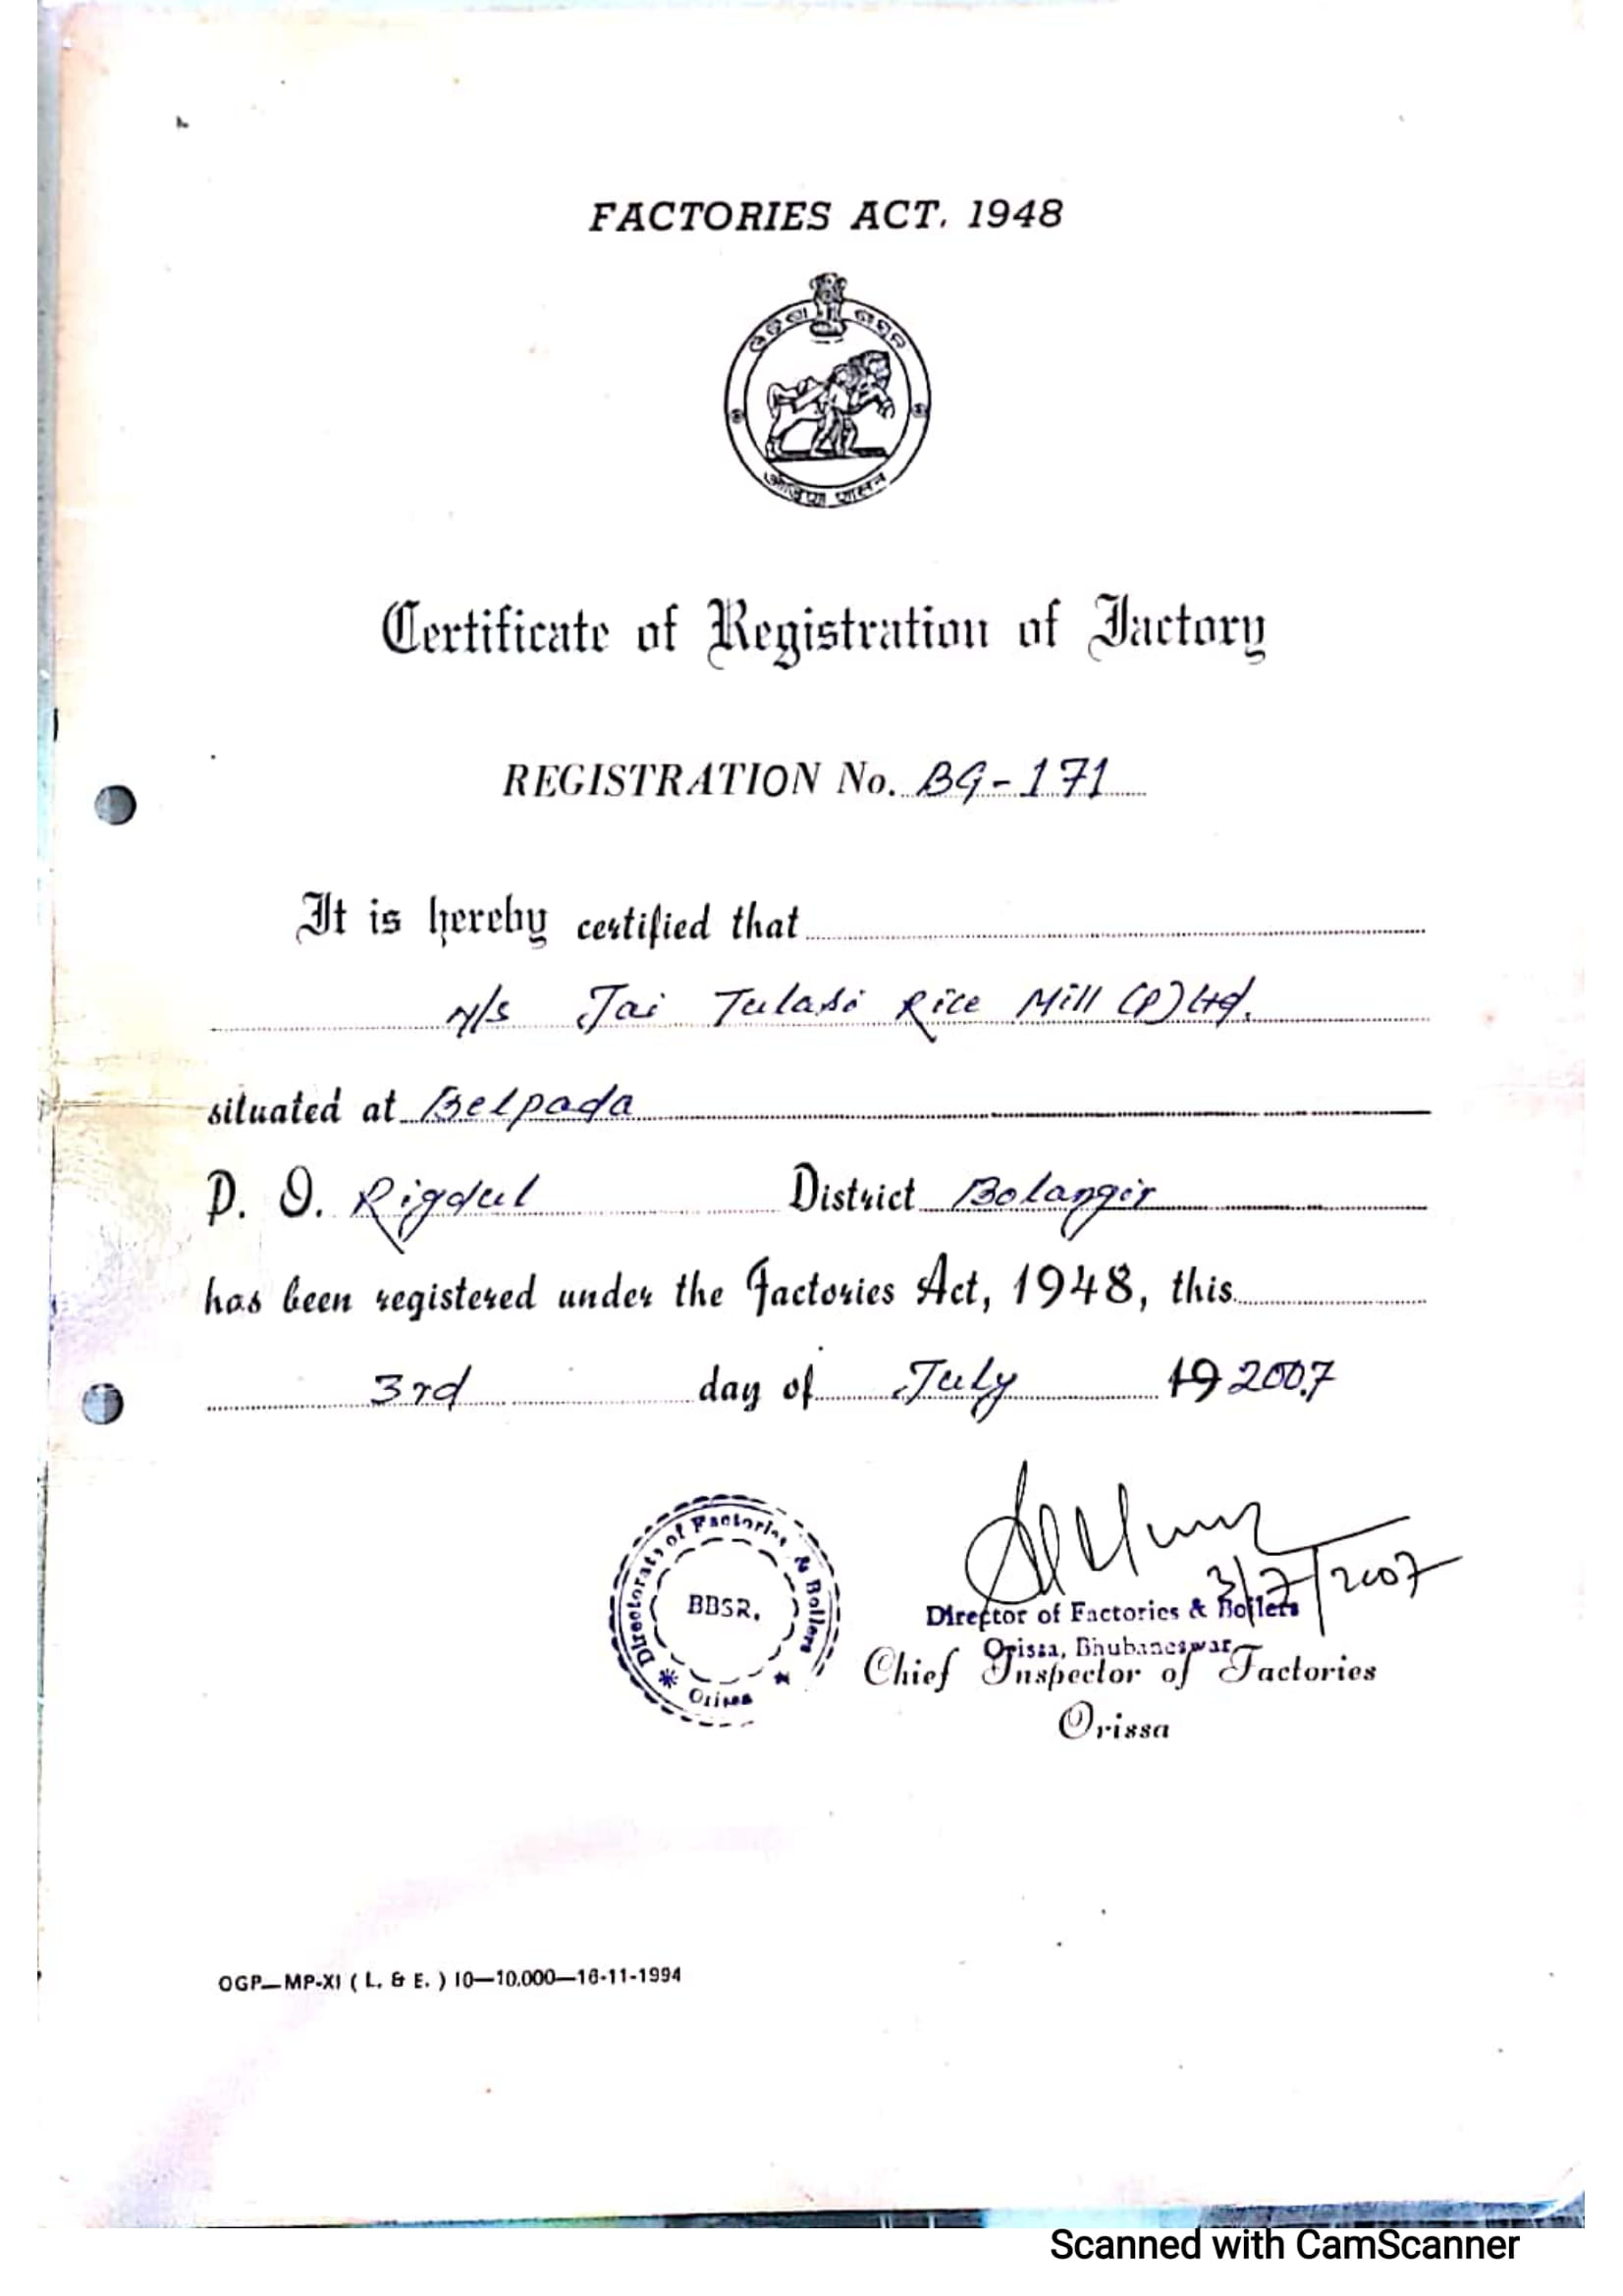 FACTORIES ACT. 1948
ଓଡ଼ିଶା ଶାସନ
Certificate of Registration of Factory
REGISTRATION No. BG-171
It is hereby certified that
M/s Jai Tulasi Rice Mill (P) Ltd.
situated at Belpada
P. O. Rigdul District Bolangir
has been registered under the Factories Act, 1948, this
3rd day of July 19 2007
Directorate of Factories & Boilers
BBSR.
Orissa
3/7/2007
Director of Factories & Boilers
Orissa, Bhubaneswar
Chief Inspector of Factories
Orissa
OGP—MP-XI ( L. & E. ) 10—10,000—16-11-1994
Scanned with CamScanner